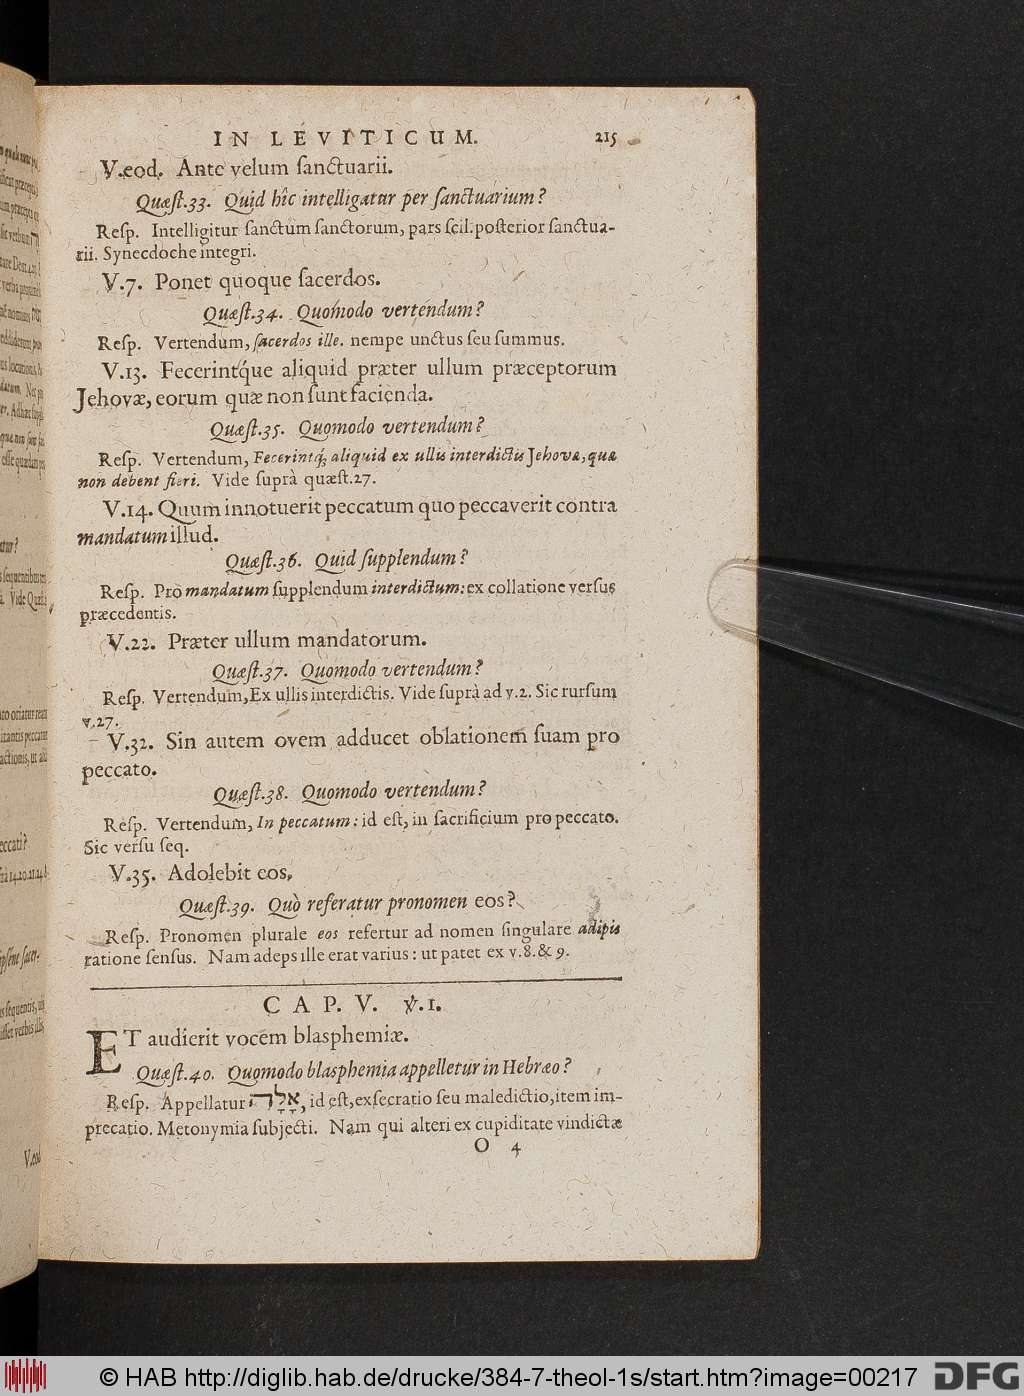 IN LEVITICUM. 215
V. eod. Ante velum sanctuarii.
Quæst.33. Quid hîc intelligatur per sanctuarium?
Resp. Intelligitur sanctum sanctorum, pars scil. posterior sanctua-
rii. Synecdoche integri.
V.7. Ponet quoque sacerdos.
Quæst.34. Quomodo vertendum?
Resp. Vertendum, sacerdos ille. nempe unctus seu summus.
V.13. Fecerintque aliquid præter ullum præceptorum
Jehovæ, eorum quæ non sunt facienda.
Quæst.35. Quomodo vertendum?
Resp. Vertendum, Fecerintq; aliquid ex ullis interdictis Jehovæ, quæ
non debent fieri. Vide suprà quæst.27.
V.14. Quum innotuerit peccatum quo peccaverit contra
mandatum illud.
Quæst.36. Quid supplendum?
Resp. Pro mandatum supplendum interdictum: ex collatione versus
præcedentis.
V.22. Præter ullum mandatorum.
Quæst.37. Quomodo vertendum?
Resp. Vertendum, Ex ullis interdictis. Vide suprà ad v.2. Sic rursum
v.27.
V.32. Sin autem ovem adducet oblationem suam pro
peccato.
Quæst.38. Quomodo vertendum?
Resp. Vertendum, In peccatum: id est, in sacrificium pro peccato.
Sic versu seq.
V.35. Adolebit eos,
Quæst.39. Quò referatur pronomen eos?
Resp. Pronomen plurale eos refertur ad nomen singulare adipis
ratione sensus. Nam adeps ille erat varius: ut patet ex v.8.& 9.
CAP. V. ℣.1.
ET audierit vocem blasphemiæ.
Quæst.40. Quomodo blasphemia appelletur in Hebræo?
Resp. Appellatur אָלָה, id est, exsecratio seu maledictio, item im-
precatio. Metonymia subjecti. Nam qui alteri ex cupiditate vindictæ
O 4
© HAB http://diglib.hab.de/drucke/384-7-theol-1s/start.htm?image=00217
DFG